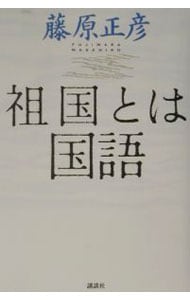 藤原正彦
FUJIWARA
MASAHIKO
祖国とは
国語
講談社